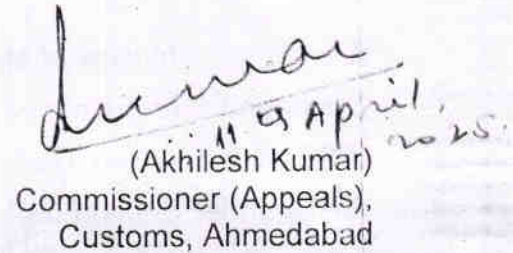 Kumar
11th April,
2025.
(Akhilesh Kumar)
Commissioner (Appeals),
Customs, Ahmedabad